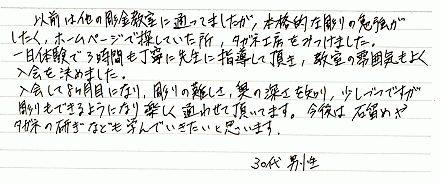 以前は他の彫金教室に通ってましたが、本格的な彫りの勉強が
したく、ホームページで探していた所、タガネ工房をみつけました。
一日体験で3時間も丁寧に先生に指導して頂き、教室の雰囲気もよく
入会を決めました。
入会して8ヶ月目になり、彫りの難しさ、奥の深さを知り、少しづつですが
彫りもできるようになり楽しく通わせて頂いてます。今後は石留めや
タガネの研ぎなども学んでいきたいと思います。
30代 男性